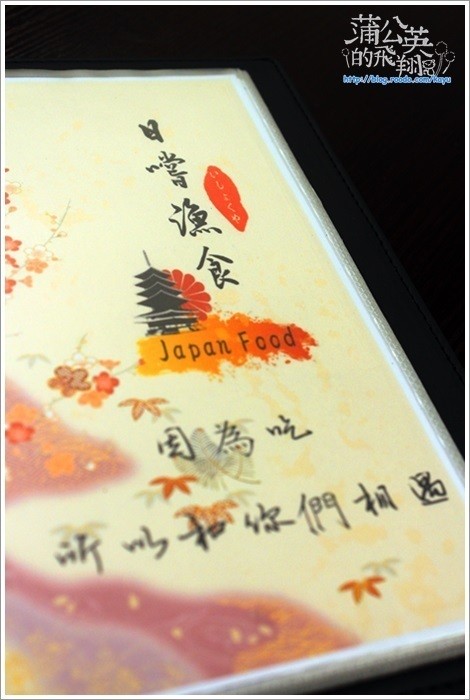 蒲公英
的飛翔
http://blog.roodo.com/kuyu
日嚐漁食
いしょくや
Japan Food
因為吃
所以和你們相遇